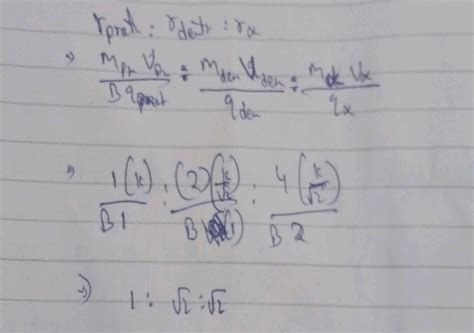 r_prot : r_deut : r_α
⇒ m_pr V_pr / B q_prot : m_deu V_deu / q_deu : m_α V_α / q_α
⇒ 1(k) / B 1 : (2)(k/√2) / B (1) : 4(k/√2) / B 2
⇒ 1 : √2 : √2